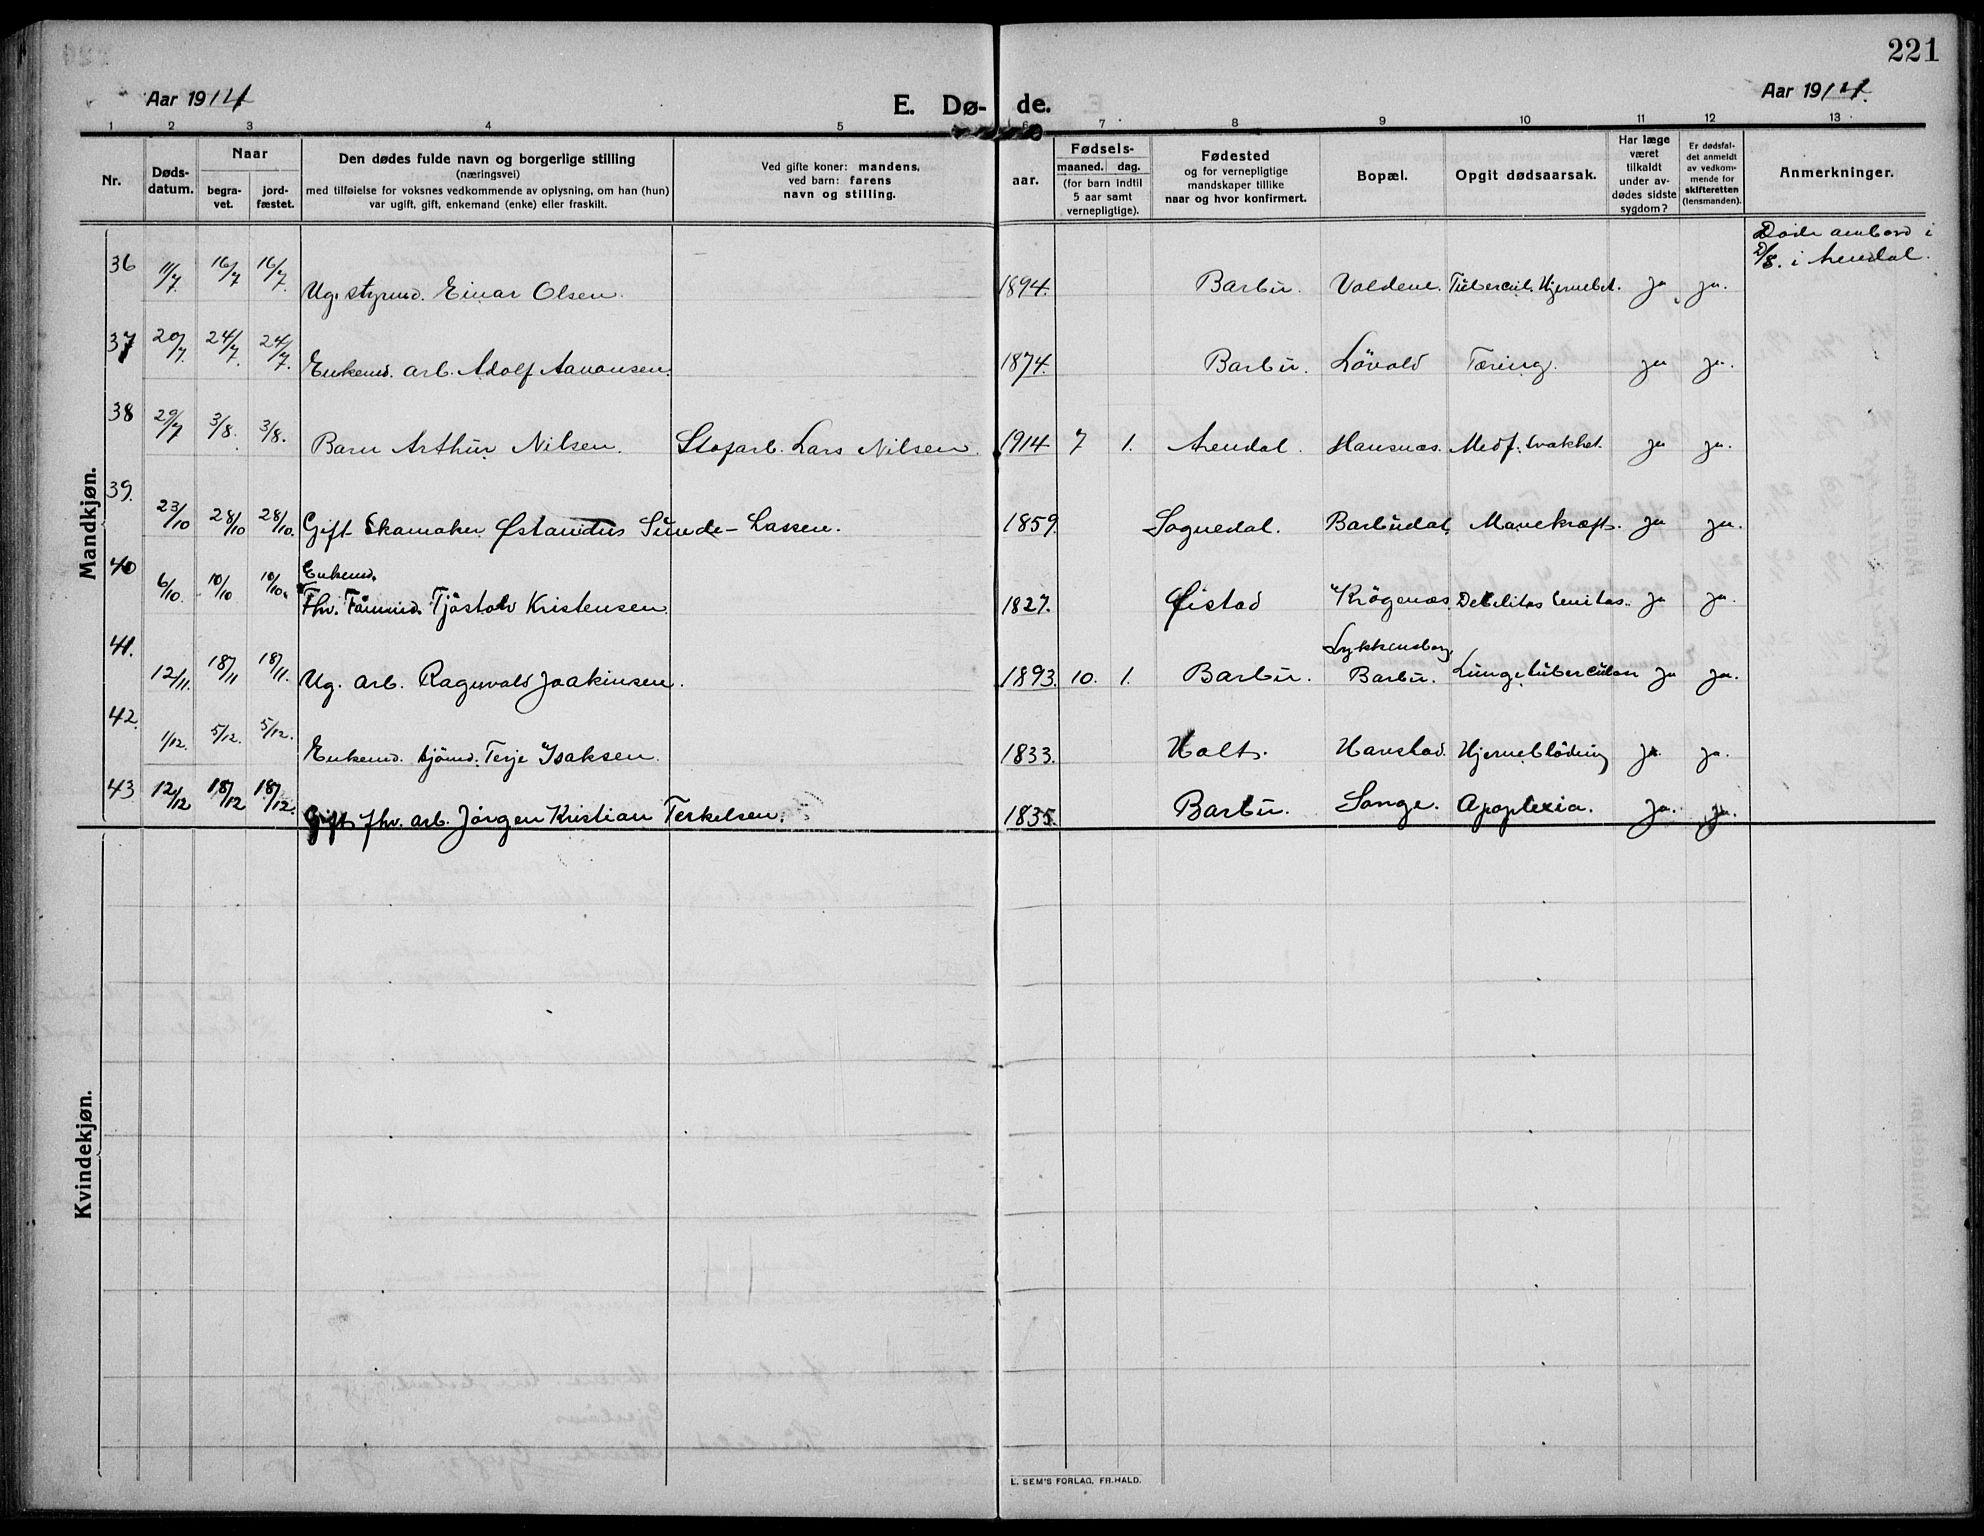 221
Aar 1914
E. Dø- de.
Aar 1914.
1 2 3 4 5 6 7 8 9 10 11 12 13
Nr.
Døds-
datum.
Naar
begra-
vet.
jord-
fæstet.
Den dødes fulde navn og borgerlige stilling
(næringsvei)
med tilføielse for voksnes vedkommende av oplysning, om han (hun)
var ugift, gift, enkemand (enke) eller fraskilt.
Ved gifte koner: mandens,
ved barn: farens
navn og stilling.
aar.
Fødsels-
maaned. dag.
(for barn indtil
5 aar samt
vernepligtige).
Fødested
og for vernepligtige
mandskaper tillike
naar og hvor konfirmert.
Bopæl.
Opgit dødsaarsak.
Har læge
været
tilkaldt
under av-
dødes sidste
sygdom?
Er dødsfal-
det anmeldt
av vedkom-
mende for
skifteretten
(lensmanden).
Anmerkninger.
Mandkjøn.
Døde ombord i
2/8. i Arendal.
36 11/7. 16/7 16/7. Ug. styrmd. Einar Olsen. 1894. Barbu. Voldene. Tubercul. Hjernebet. ja ja.
37 20/7. 24/7. 24/7. Enkemd. arb. Adolf Aavonsen. 1874. Barbu. Lövold Tæring. ja ja.
38 29/7 3/8. 3/8. Barn Arthur Nilsen. Stofarb. Lars Nilsen. 1914 7 1. Arendal. Hansnæs. Medf. svakhet. ja ja.
39. 23/10 28/10 28/10. Gift Skomaker Østanidus Sunde-Lassen. 1859. Sognedal. Barbudal. Mavekræft. ja ja.
Enkemd.
40 6/10. 10/10 10/10. Fhv. Tømmd. Tjöstolv Kristensen 1827. Øistad Krögenæs Debilitas senitas. ja ja.
Lykkensborg,
41. 12/11. 18/11 18/11. Ug. arb. Ragnvald Joakimsen. 1893. 10. 1. Barbu. Barbu. Lungetuberculose ja ja.
42. 1/12. 5/12. 5/12. Enkemd. sjömd. Terje Isaksen. 1833. Holt. Havstad. Hjerneblödning ja. ja.
43 12/12 18/12 18/12. Gift fhv. arb. Jörgen Kristian Terkelsen. 1835. Barbu. Songe. Apoplexia. ja. ja.
Kvindekjøn.
L. SEM'S FORLAG, FR.HALD.